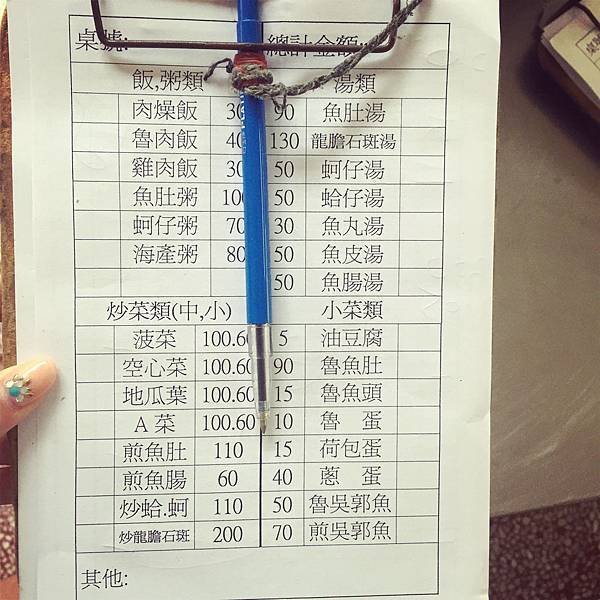 桌號: 總計金額:
飯,粥類 湯類
肉燥飯 30 90 魚肚湯
魯肉飯 40 130 龍膽石斑湯
雞肉飯 30 50 蚵仔湯
魚肚粥 100 50 蛤仔湯
蚵仔粥 70 30 魚丸湯
海產粥 80 50 魚皮湯
50 魚腸湯
炒菜類(中,小) 小菜類
菠菜 100.60 5 油豆腐
空心菜 100.60 90 魯魚肚
地瓜葉 100.60 15 魯魚頭
A菜 100.60 10 魯 蛋
煎魚肚 110 15 荷包蛋
煎魚腸 60 40 蔥 蛋
炒蛤.蚵 110 50 魯吳郭魚
炒龍膽石斑 200 70 煎吳郭魚
其他: